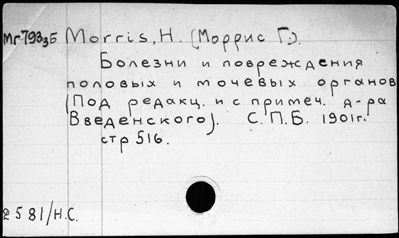 Мг793зБ Morris, H. (Моррис Г.).
Болезни и повреждения
половых и мочевых органов
(Под редакц. и с примеч. д-ра
Введенского). С.П.Б. 1901г.
стр 516.
2581/Н.С.